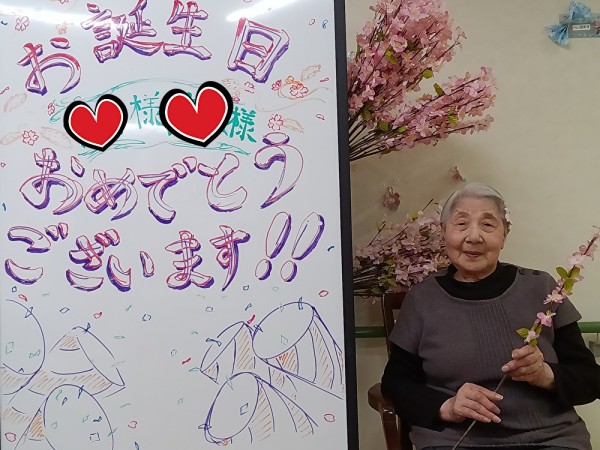 お誕生日
様 様
おめでとう
ございます!!